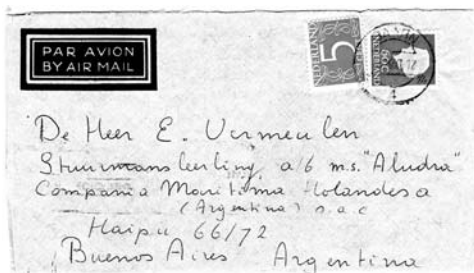 PAR AVION
BY AIR MAIL
NEDERLAND
5
De Heer E. Vermeulen
Stuurmansleerling a/b m.s. "Aludra"
Compania Maritima Holandesa
(Argentina) s.a.c
Haipu 66/72
Buenos Aires Argentina